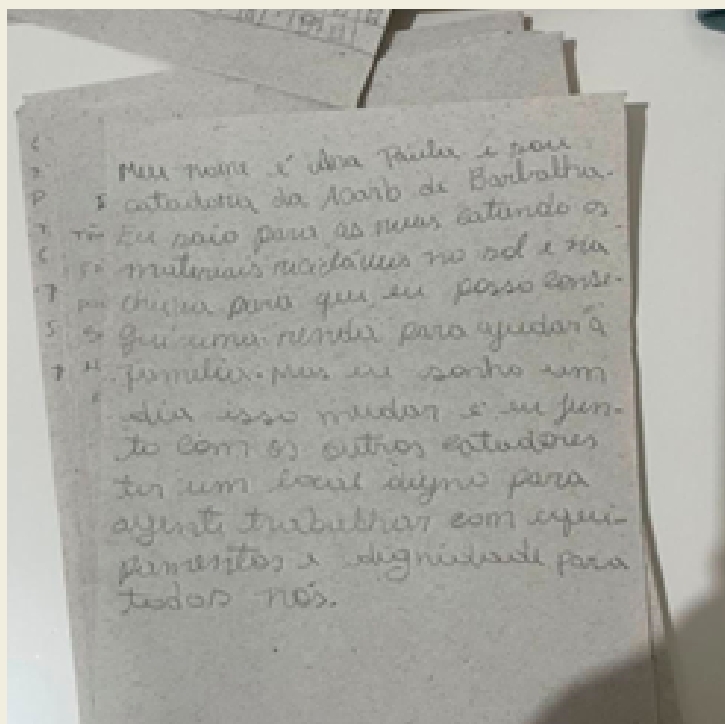 Meu nome é Ana Paula e sou
catadora da Acarb de Barbalha.
Eu saio para as ruas catando os
materiais recicláveis no sol e na
chuva para que eu posso conse-
gui uma renda para ajudar a
familia. Mas eu sonho um
dia isso mudar e eu jun-
to com os outros catadores
ter um local digno para
agente trabalhar com equi-
pamentos e dignidade para
todos nós.